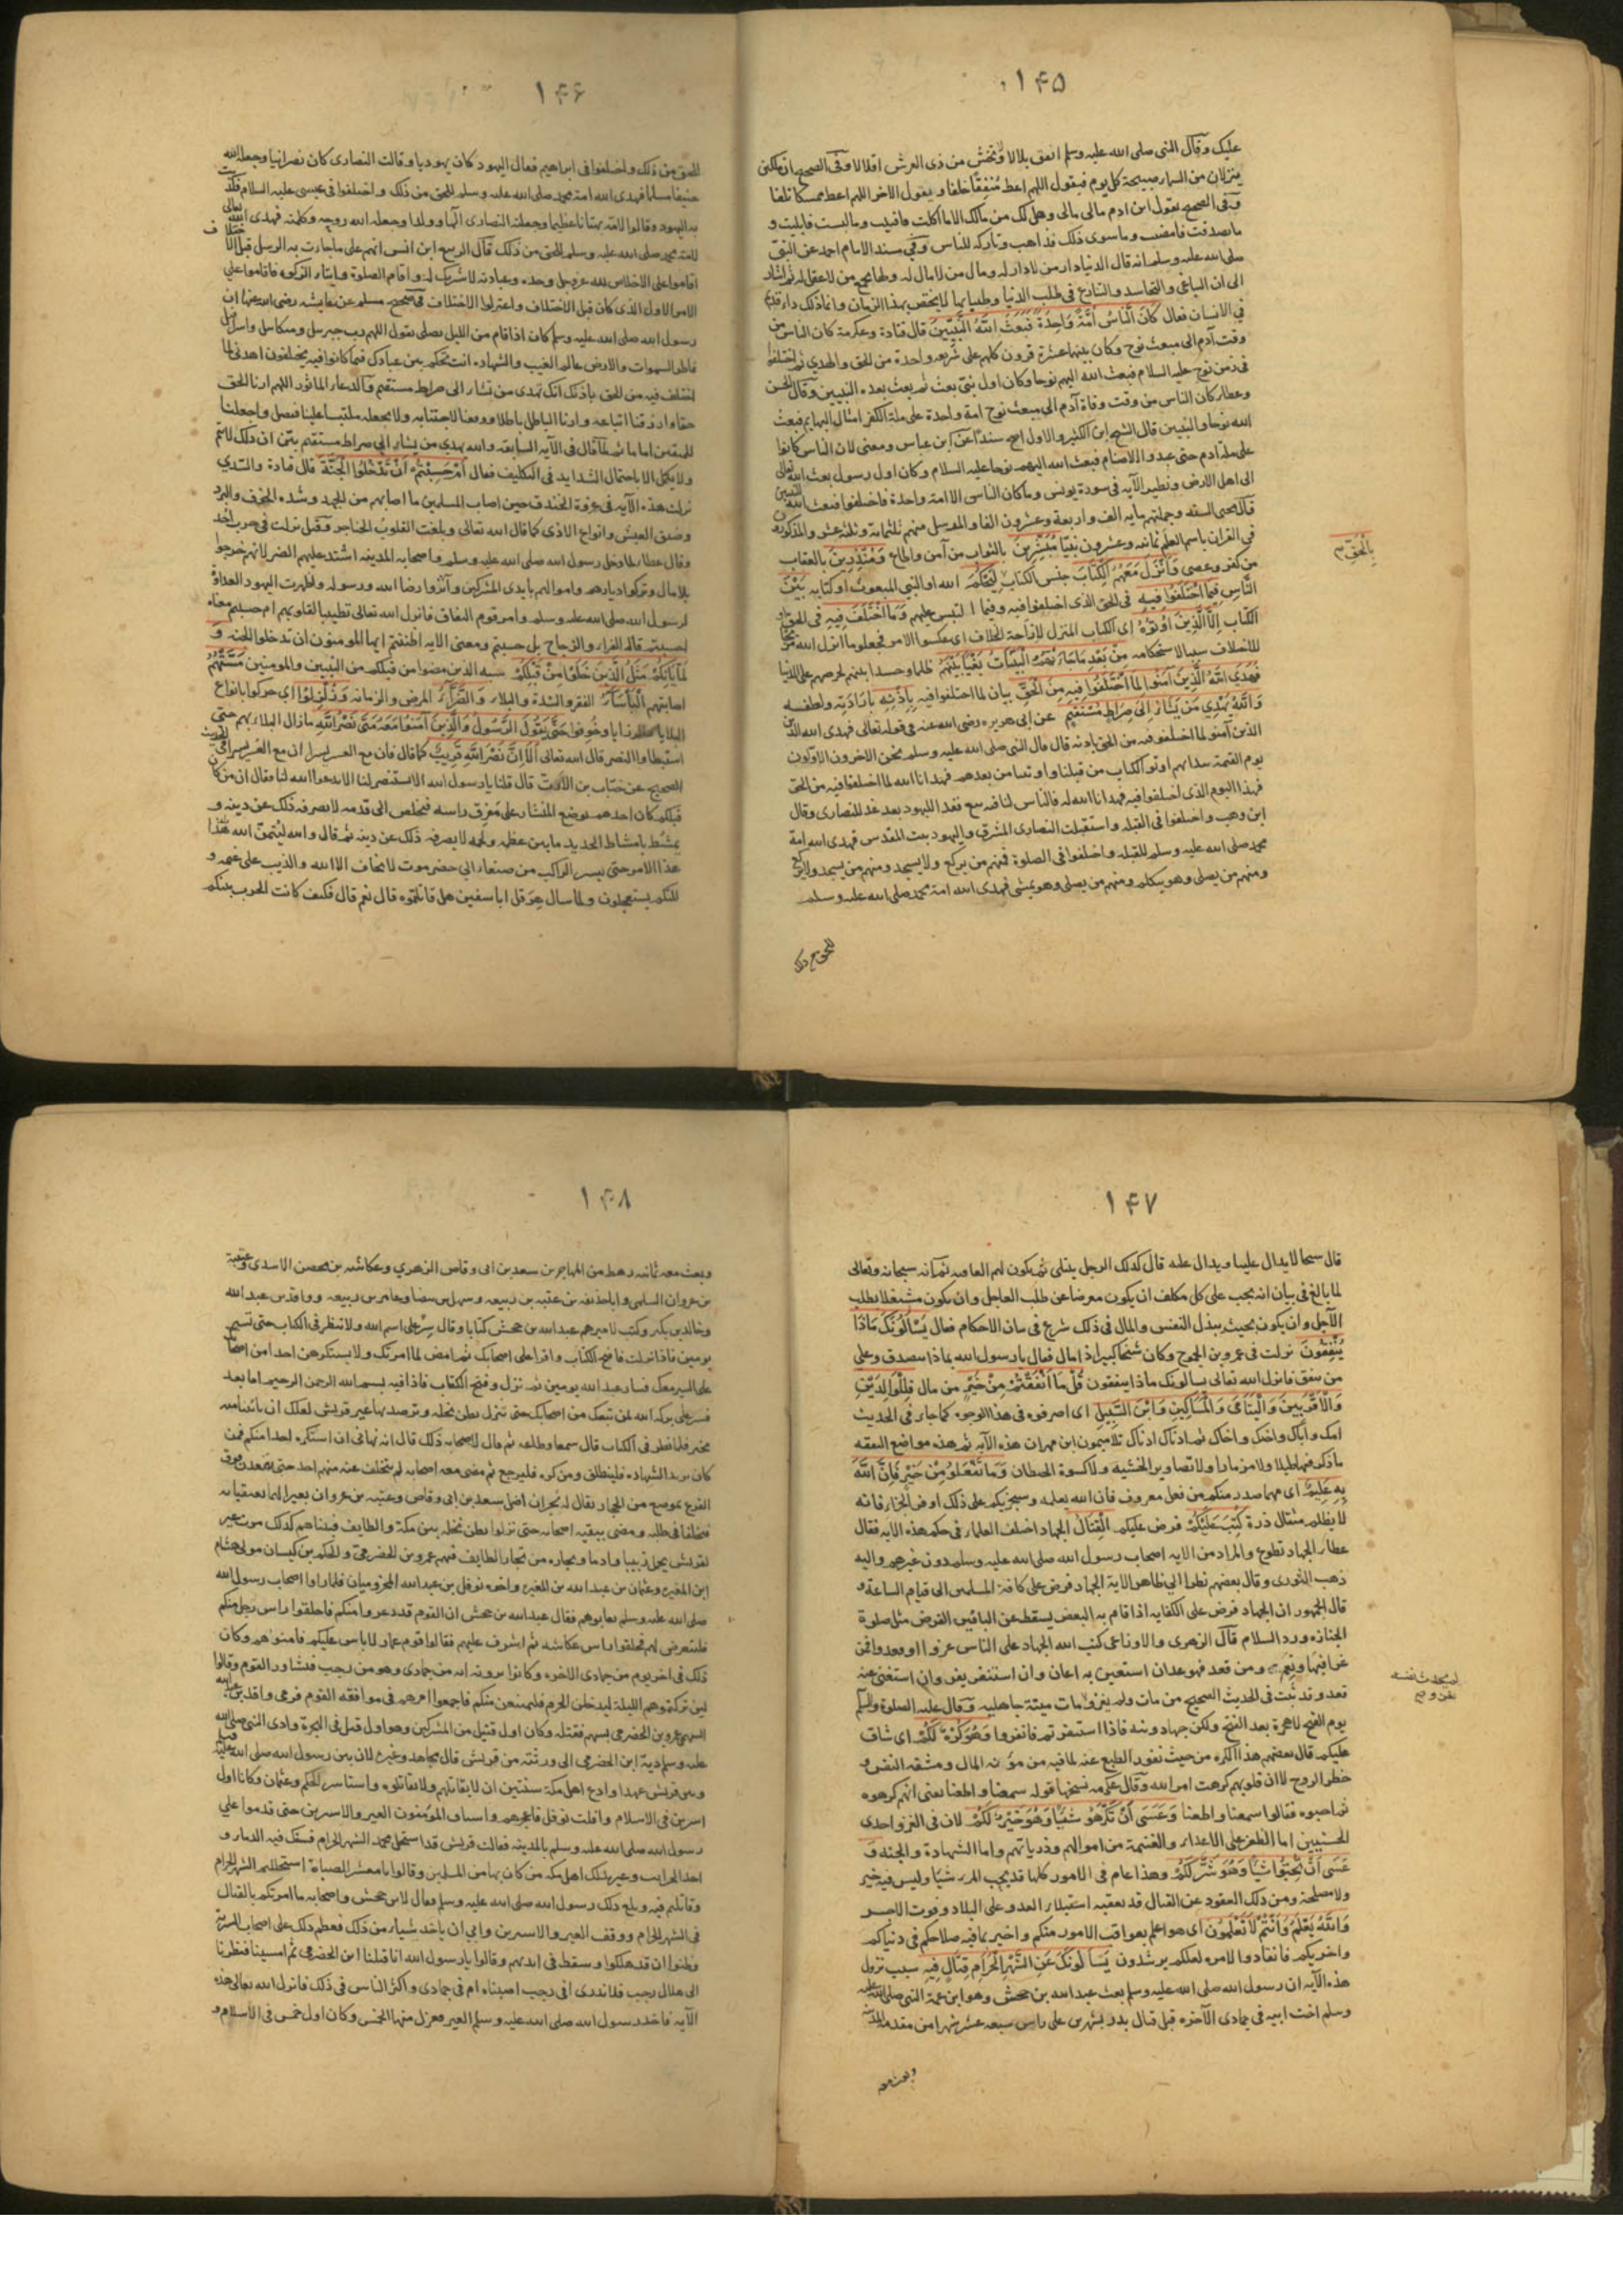 ۱۴۵
عليك وقال النبي صلى الله عليه وسلم انفق بلالا ولا تخش من ذى العرش اقلالا وفى الصحيح ان ملكين
ينزلان من السماء صبيحة كل يوم فيقول اللهم اعط مُنفِقًا خلفا ويقول الاخر اللهم اعط ممسكا تلفا
وفى الصحيح يقول ابن ادم مالى مالى وهل لك من مالك الا ما اكلت فافنيت وما لبست فابليت و
ما تصدقت فامضيت وما سوى ذلك فذاهب وتاركه للناس وفى مسند الامام احمد عن النبي
صلى الله عليه وسلم انه قال الدنيا دار من لا دار له ومال من لا مال له ولها يجمع من لا عقل له ثم اشار
الى ان التباغى والتحاسد والتنازع فى طلب الدنيا وطيباتها لا يختص بهذا الزمان وانما ذلك داء قديم
في الانسان فقال كَانَ النَّاسُ اُمَّةً وَاحِدَةً فَبَعَثَ اللهُ النَّبِيِّينَ قال قتادة وعكرمة كان الناس من
وقت آدم الى مبعث نوح وكان بينهما عشرة قرون كلهم على شريعة واحدة من الحق والهدى ثم اختلفوا
فى زمن نوح عليه السلام فبعث الله اليهم نوحا وكان اول نبي بعث ثم بعث بعده النبيين وقال الحسن
وعطاء كان الناس من وقت وفاة آدم الى مبعث نوح امة واحدة على ملة الكفر امثال البهايم فبعث
الله نوحا والنبيين قال الشيخ ابن الكثير والاول اصح سندًا عن ابن عباس ومعنى لان الناس كانوا
على ملة ادم حتى عبدوا الاصنام فبعث الله اليهم نوحا عليه السلام وكان اول رسول بعث الله تعالى
الى اهل الارض ونظير الآية فى سورة يونس وما كان الناس الا امة واحدة فاختلفوا فبعث الله النبيين
قال محيى السنة وجملتهم مايه الف واربعة وعشرون الفا والمرسل منهم ثلثمائة وثلثة عشر والمذكورون
فى القران باسم العلم ثمانيه وعشرون نبيّا مُبَشِّرِينَ بالثواب من آمن واطاع وَمُنْذِرِينَ بالعقاب
من كفر وعصى وَاَنْزَلَ مَعَهُمُ الْكِتَابَ جنس الكتاب لِيَحْكُمَ الله او النبي المبعوث او كتابه بَيْنَ
النَّاسِ فِيمَا اخْتَلَفُوا فِيهِ فى الحق الذى اختلفوا فيه وفيما التبس عليهم وَمَا اخْتَلَفَ فِيهِ فى الحق او
الكتاب اِلَّا الَّذِينَ اُوتُوهُ اى الكتاب المنزل لازاحة الخلاف اى عكسوا الامر فجعلوا ما انزل الله مزيحا
للاختلاف سببا لاستحكامه مِنْ بَعْدِ مَا جَاءَتْهُمُ الْبَيِّنَاتُ بَغْيًا بَيْنَهُمْ ظلما وحسدا بينهم لحرصهم على الدنيا
فَهَدَى اللهُ الَّذِينَ آمَنُوا لِمَا اخْتَلَفُوا فِيهِ مِنَ الْحَقِّ بيان لما اختلفوا فيه بِاِذْنِهِ بارادته ولطفه
وَاللهُ يَهْدِي مَنْ يَشَاءُ اِلَى صِرَاطٍ مُسْتَقِيمٍ عن ابى هريره رضى الله عنه فى قوله تعالى فهدى الله الذين
الذين آمنوا لما اختلفوا فيه من الحق باذنه قال قال النبي صلى الله عليه وسلم نحن الاخرون الاولون
يوم القيمة بيد انهم اوتوا الكتاب من قبلنا واوتينا من بعدهم فهدانا الله لما اختلفوا فيه من الحق
فهذا اليوم الذى اختلفوا فيه فهدانا الله له فالناس لنا فيه تبع فغدا لليهود وبعد غد للنصارى وقال
ابن وهب واختلفوا فى القبلة واستقبلت النصارى المشرق واليهود بيت المقدس فهدى الله امة
محمد صلى الله عليه وسلم للقبلة واختلفوا فى الصلوة فمنهم من يركع ولا يسجد ومنهم من يسجد ولا يركع
ومنهم من يصلى وهو يتكلم ومنهم من يصلى وهو يمشى فهدى الله امة محمد صلى الله عليه وسلم
بِالْحَقِّ
للحق من ذلك
۱۴۶
للحق من ذلك واختلفوا فى ابراهيم فقال اليهود كان يهوديا وقالت النصارى كان نصرانيا وجعله الله
حنيفا مسلما فهدى الله امة محمد صلى الله عليه وسلم للحق من ذلك واختلفوا فى عيسى عليه السلام فكذبت
به اليهود وقالوا لامه بهتانا عظيما وجعلته النصارى الها وولدا وجعله الله روحه وكلمته فهدى الله تعالى
لامة محمد صلى الله عليه وسلم للحق من ذلك قال الربيع ابن انس انهم على ما جاءت به الرسل قبل الاختلاف
اقاموا على الاخلاص لله عز وجل وحده وعبادته لا شريك له واقام الصلوة وايتاء الزكوة فاقاموا على
الامر الاول الذى كان قبل الاختلاف واعتزلوا الاختلاف فى صحيح مسلم عن عايشه رضى الله عنها ان
رسول الله صلى الله عليه وسلم كان اذا قام من الليل يصلى يقول اللهم رب جبريل وميكائيل واسرافيل
فاطر السموات والارض عالم الغيب والشهادة انت تحكم بين عبادك فيما كانوا فيه يختلفون اهدنى لما
اختلف فيه من الحق باذنك انك تهدى من تشاء الى صراط مستقيم وفى الدعاء الماثور اللهم ارنا الحق
حقا وارزقنا اتباعه وارنا الباطل باطلا ووفقنا لاجتنابه ولا تجعله ملتبسا علينا فنضل واجعلنا
للمتقين اماما ثم لما قال فى الآية السابقة والله يهدى من يشاء الى صراط مستقيم بيّن ان ذلك لا يتم
ولا يكمل الا باحتمال الشدايد فى التكليف فقال اَمْ حَسِبْتُمْ اَنْ تَدْخُلُوا الْجَنَّةَ قال قتادة والسّدي
نزلت هذه الآيه فى غزوة الخندق حين اصاب المسلمين ما اصابهم من الجهد وشدة الخوف والبرد
وضيق العيش وانواع الاذى كما قال الله تعالى وبلغت القلوب الحناجر وقيل نزلت فى حرب احد
وقال عطاء لما دخل رسول الله صلى الله عليه وسلم واصحابه المدينة اشتد عليهم الضر لانهم خرجوا
بلا مال وتركوا ديارهم واموالهم بايدى المشركين وآثروا رضا الله ورسوله واظهرت اليهود العداوة
لرسول الله صلى الله عليه وسلم واسر قوم النفاق فانزل الله تعالى تطييبا لقلوبهم ام حسبتم معناه
احسبتم قاله الفراء والزجاج بل حسبتم ومعنى الآيه اظننتم ايها المومنون ان تدخلوا الجنة وَ
لَمَّا يَاْتِكُمْ مَثَلُ الَّذِينَ خَلَوْا مِنْ قَبْلِكُمْ شبه الذين مضوا من قبلكم من النبيين والمومنين مَسَّتْهُمُ
اصابتهم الْبَأْسَاءُ الفقر والشدة والبلاء وَالضَّرَّاءُ المرض والزمانة وَزُلْزِلُوا اى حركوا بانواع
البلايا والرزايا وخُوِّفوا حَتَّى يَقُولَ الرَّسُولُ وَالَّذِينَ آمَنُوا مَعَهُ مَتَى نَصْرُ اللهِ ما زال البلاء بهم حتى
استبطاوا النصر قال الله تعالى اَلَا اِنَّ نَصْرَ اللهِ قَرِيبٌ كما قال فان مع العسر يسرا ان مع العسر يسرا وفى الحديث
الصحيح عن خبّاب بن الارتّ قال قلنا يا رسول الله الا تستنصر لنا الا تدعوا الله لنا فقال ان من كان
قبلكم كان احدهم يوضع المنشار على مَفرِق راسه فيخلص الى قدميه لا يصرفه ذلك عن دينه و
يمشط بامشاط الحديد ما بين عظمه ولحمه لا يصرفه ذلك عن دينه ثم قال والله ليتمنّ الله هذا
هذا الامر حتى يسير الراكب من صنعاء الى حضرموت لا يخاف الا الله والذيب على غنمه و
لكنكم تستعجلون ولما سال هرقل ابا سفين هل قاتلتموه قال نعم قال فكيف كانت الحرب بينكم
۱۴۷
قال سجالا يدال علينا ويدال عليه قال كذلك الرسل يبتلى ثم يكون لهم العاقبة ثم انه سبحانه وتعالى
لما بالغ فى بيان انه يجب على كل مكلف ان يكون معرضا عن طلب العاجل وان يكون مشتغلا بطلب
الآجل وان يكون بحيث يبذل النفس والمال فى ذلك شرع فى بيان الاحكام فقال يَسْاَلُونَكَ مَاذَا
يُنْفِقُونَ نزلت فى عمرو بن الجموح وكان شيخا كبيرا ذا مال فقال يا رسول الله بماذا نتصدق وعلى
من ننفق فانزل الله تعالى يسالونك ماذا ينفقون قُلْ مَا اَنْفَقْتُمْ مِنْ خَيْرٍ من مال فَلِلْوَالِدَيْنِ
وَالْاَقْرَبِينَ وَالْيَتَامَى وَالْمَسَاكِينِ وَابْنِ السَّبِيلِ اى اصرفوه فى هذا الوجوه كما جاء فى الحديث
امك واباك واختك واخاك ثم ادناك ادناك تلا ميمون ابن مهران هذه الآيه ثم هذه مواضع النفقه
ما ذكر فيها طبلا ولا مزمارا ولا تصاوير الخشبه ولا كسوة الحيطان وَمَا تَفْعَلُوا مِنْ خَيْرٍ فَاِنَّ اللهَ
بِهِ عَلِيمٌ اى مهما صدر منكم من فعل معروف فان الله يعلمه وسيجزيكم على ذلك اوفر الجزاء فانه
لا يظلم مثقال ذرة كُتِبَ عَلَيْكُمُ فرض عليكم الْقِتَالُ الجهاد اختلف العلماء فى حكم هذه الآيه فقال
عطاء الجهاد تطوع والمراد من الآيه اصحاب رسول الله صلى الله عليه وسلم دون غيرهم واليه
ذهب الثورى وقال بعضهم نظرا الى ظاهر الآية الجهاد فرض على كافة المسلمين الى قيام الساعة و
قال الجمهور ان الجهاد فرض على الكفايه اذا قام به البعض يسقط عن الباقين الفرض مثل صلوة
الجنازه ورد السلام قال الزهرى والاوزاعى كتب الله الجهاد على الناس غزوا او قعدوا فمن
غزا فبها ونعم ومن قعد فهو عدان استعين به اعان وان استنفر نفر وان استغنى عنه
قعد وقد ثبت فى الحديث الصحيح من مات ولم يغز ومات ميتة جاهليه وقال عليه الصلوة والسلام
يوم الفتح لا هجرة بعد الفتح ولكن جهاد ونية فاذا استنفرتم فانفروا وَهُوَ كُرْهٌ لَكُمْ اى شاق
عليكم قال بعضهم هذا الكره من حيث نفور الطبع عنه لما فيه من مؤنة المال ومشقة النفس و
خطر الروح لا ان قلوبهم كرهت امر الله وقال عكرمه نسخها قوله سمعنا واطعنا يعنى انهم كرهوه
ثم احبوه فقالوا سمعنا واطعنا وَعَسَى اَنْ تَكْرَهُوا شَيْئًا وَهُوَ خَيْرٌ لَكُمْ لان فى الغزو احدى
الحسنيين اما الظفر على الاعداء والغنيمة من اموالهم وذرياتهم واما الشهادة والجنة وَ
عَسَى اَنْ تُحِبُّوا شَيْئًا وَهُوَ شَرٌّ لَكُمْ وهذا عام فى الامور كلها قد يحب المرء شيئا وليس فيه خير
ولا مصلحة ومن ذلك القعود عن القتال قد يعقبه استيلاء العدو على البلاد وفوت الاجر
وَاللهُ يَعْلَمُ وَاَنْتُمْ لَا تَعْلَمُونَ اى هو اعلم بعواقب الامور منكم واخبر بما فيه صلاحكم فى دنياكم
واخريكم فانقادوا لامره لعلكم ترشدون يَسْاَلُونَكَ عَنِ الشَّهْرِ الْحَرَامِ قِتَالٍ فِيهِ سبب نزول
هذه الآيه ان رسول الله صلى الله عليه وسلم بعث عبد الله بن جحش وهو ابن عمة النبى صلى الله عليه
وسلم اخت ابيه فى جمادى الآخره قبل قتال بدر بشهرين على راس سبعه عشر شهرا من مقدمه المدينة
وبعث معه
۱۴۸
وبعث معه ثمانيه رهط من المهاجرين سعد بن ابى وقاص الزهري وعكاشه بن محصن الاسدى وعتبه
بن غزوان السلمى وابا حذيفه بن عتبه بن ربيعه وسهيل بن بيضا وعامر بن ربيعه وواقد بن عبد الله
وخالد بن بكير وكتب لاميرهم عبد الله بن جحش كتابا وقال سِرْ على اسم الله ولا تنظر فى الكتاب حتى تسير
يومين فاذا نزلت فافتح الكتاب واقرا على اصحابك ثم امض لما امرتك ولا تستكرهن احدا من اصحابك
على السير معك فسار عبد الله يومين ثم نزل وفتح الكتاب فاذا فيه بسم الله الرحمن الرحيم اما بعد
فسر على بركة الله بمن تبعك من اصحابك حتى تنزل بطن نخله وترصد بها عير قريش لعلك ان تاتينا منه
بخير فلما نظر فى الكتاب قال سمعا وطاعه ثم قال لاصحابه ذلك قال انه نهانى ان استكره احدا منكم فمن
كان يريد الشهادة فلينطلق ومن كره فليرجع ثم مضى معه اصحابه لم يتخلف عنه منهم احد حتى بمعدن فوق
الفرع بموضع من الحجاز يقال له بُحران اضل سعد بن ابى وقاص وعتبه بن غزوان بعيرا لهما يعتقبانه
فتخلفا فى طلبه ومضى ببقية اصحابه حتى نزلوا بطن نخله بين مكة والطايف فبيناهم كذلك مرت عير
لقريش تحمل زبيبا وادما وتجارة من تجار الطايف فيهم عمرو بن الحضرمى والحكم بن كيسان مولى هشام
ابن المغيره وعثمان بن عبد الله بن المغيره واخوه نوفل بن عبد الله المخزوميان فلما راوا اصحاب رسول الله
صلى الله عليه وسلم هابوهم فقال عبد الله بن جحش ان القوم قد ذعروا منكم فاحلقوا راس رجل منكم
فليتعرض لهم فحلقوا راس عكاشه ثم اشرف عليهم فقالوا قوم عمار لا باس عليكم فامنوهم وكان
ذلك فى اخر يوم من جمادى الاخره وكانوا يرونه انه من جمادى وهو من رجب فتشاور القوم وقالوا
لين تركتموهم الليلة ليدخلن الحرم فليمتنعن منكم فاجمعوا امرهم فى موافقه القوم فرمى واقد بن عبد الله
السهمى عمرو بن الحضرمى بسهم فقتله وكان اول قتيل من المشركين وهو اول قتيل فى الهجرة وادى النبى صلى الله
عليه وسلم دية ابن الحضرمى الى ورثته من قريش قال مجاهد وغيره لان بين رسول الله صلى الله عليه
وبين قريش عهدا وادع اهل مكة سنتين ان لا يقاتلهم ولا يقاتلوه واستاسر الحكم وعثمان وكانا اول
اسيرين فى الاسلام وافلت نوفل فاعجزهم واستاق المؤمنون العير والاسيرين حتى قدموا على
رسول الله صلى الله عليه وسلم بالمدينه فقالت قريش قد استحل محمد الشهر الحرام فسفك فيه الدماء و
اخذ الحرايب وعير بذلك اهل مكه من كان بها من المسلمين وقالوا يا معشر الصباة استحللتم الشهر الحرام
وقاتلتم فيه وبلغ ذلك رسول الله صلى الله عليه وسلم فقال لابن جحش واصحابه ما امرتكم بالقتال
فى الشهر الحرام ووقف العير والاسيرين وابى ان ياخذ شيئا من ذلك فعظم ذلك على اصحاب السرية
وظنوا ان قد هلكوا وسقط فى ايديهم وقالوا يا رسول الله انا قتلنا ابن الحضرمى ثم امسينا فنظرنا
الى هلال رجب فلا ندرى افى رجب اصبناه ام فى جمادى واكثر الناس فى ذلك فانزل الله تعالى هذه
الآيه فاخذ رسول الله صلى الله عليه وسلم العير فعزل منها الخمس وكان اول خمس فى الاسلام و